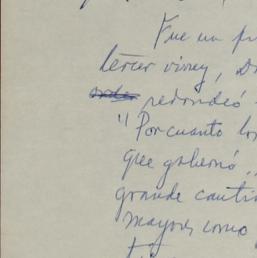 Fue un pr
tercer virrey, D
redondeó
"Porcuanto los
que gobernó,
grande canti
mayores como